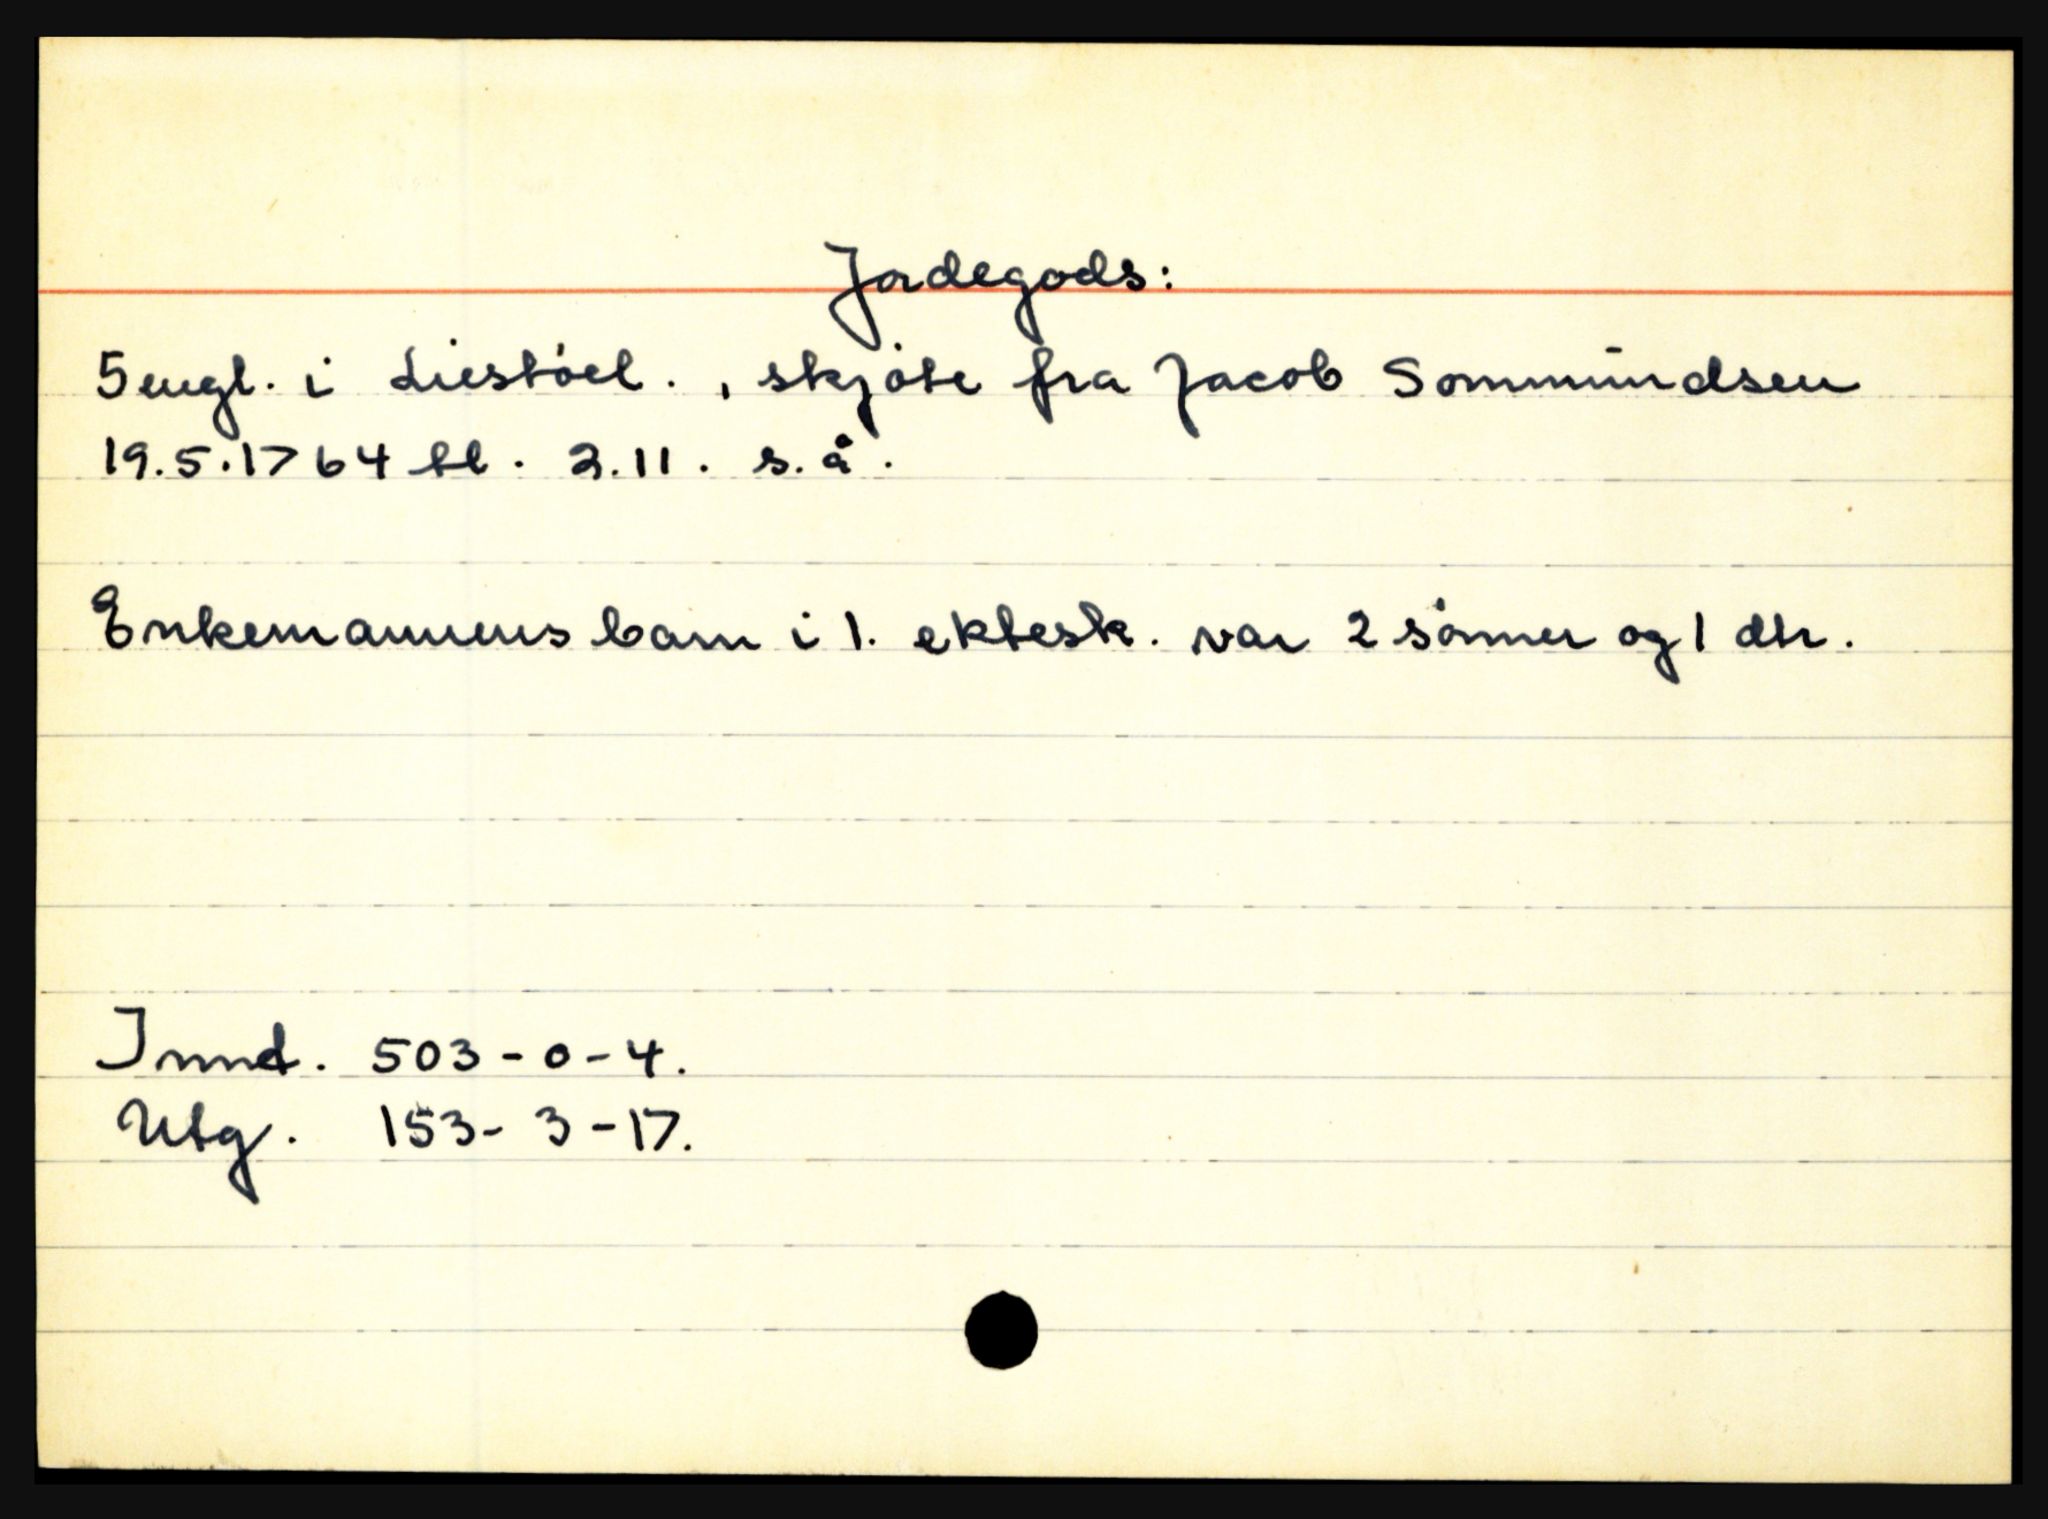 Jordegods:
5 engl. i Liestöel., skjöte fra Jacob Sommündsen
19.5.1764 tl. 2.11. s.å.
Enkemannens barn i 1. ektesk. var 2 sönner og 1 dtr.
Innt. 503-0-4.
Utg. 153-3-17.